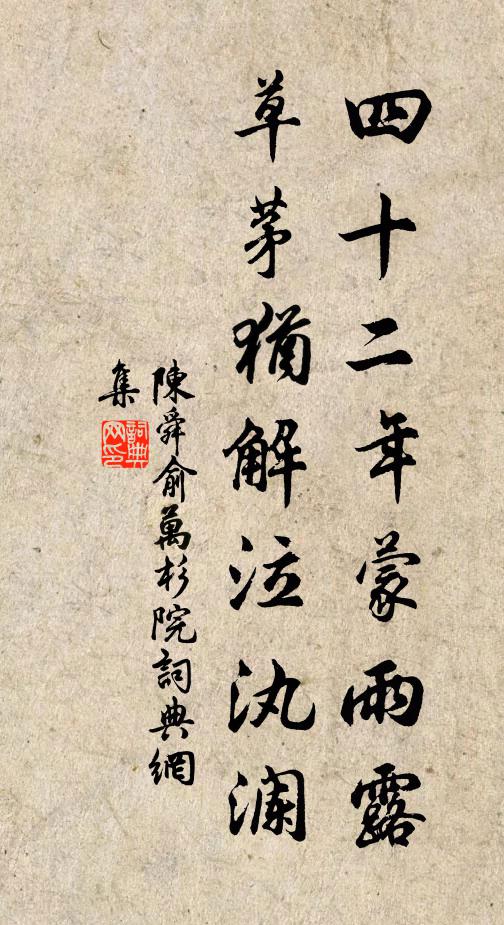 四十二年蒙雨露
草茅猶解泣汍瀾
陳舜俞萬杉院詞典網
集
詞典网印